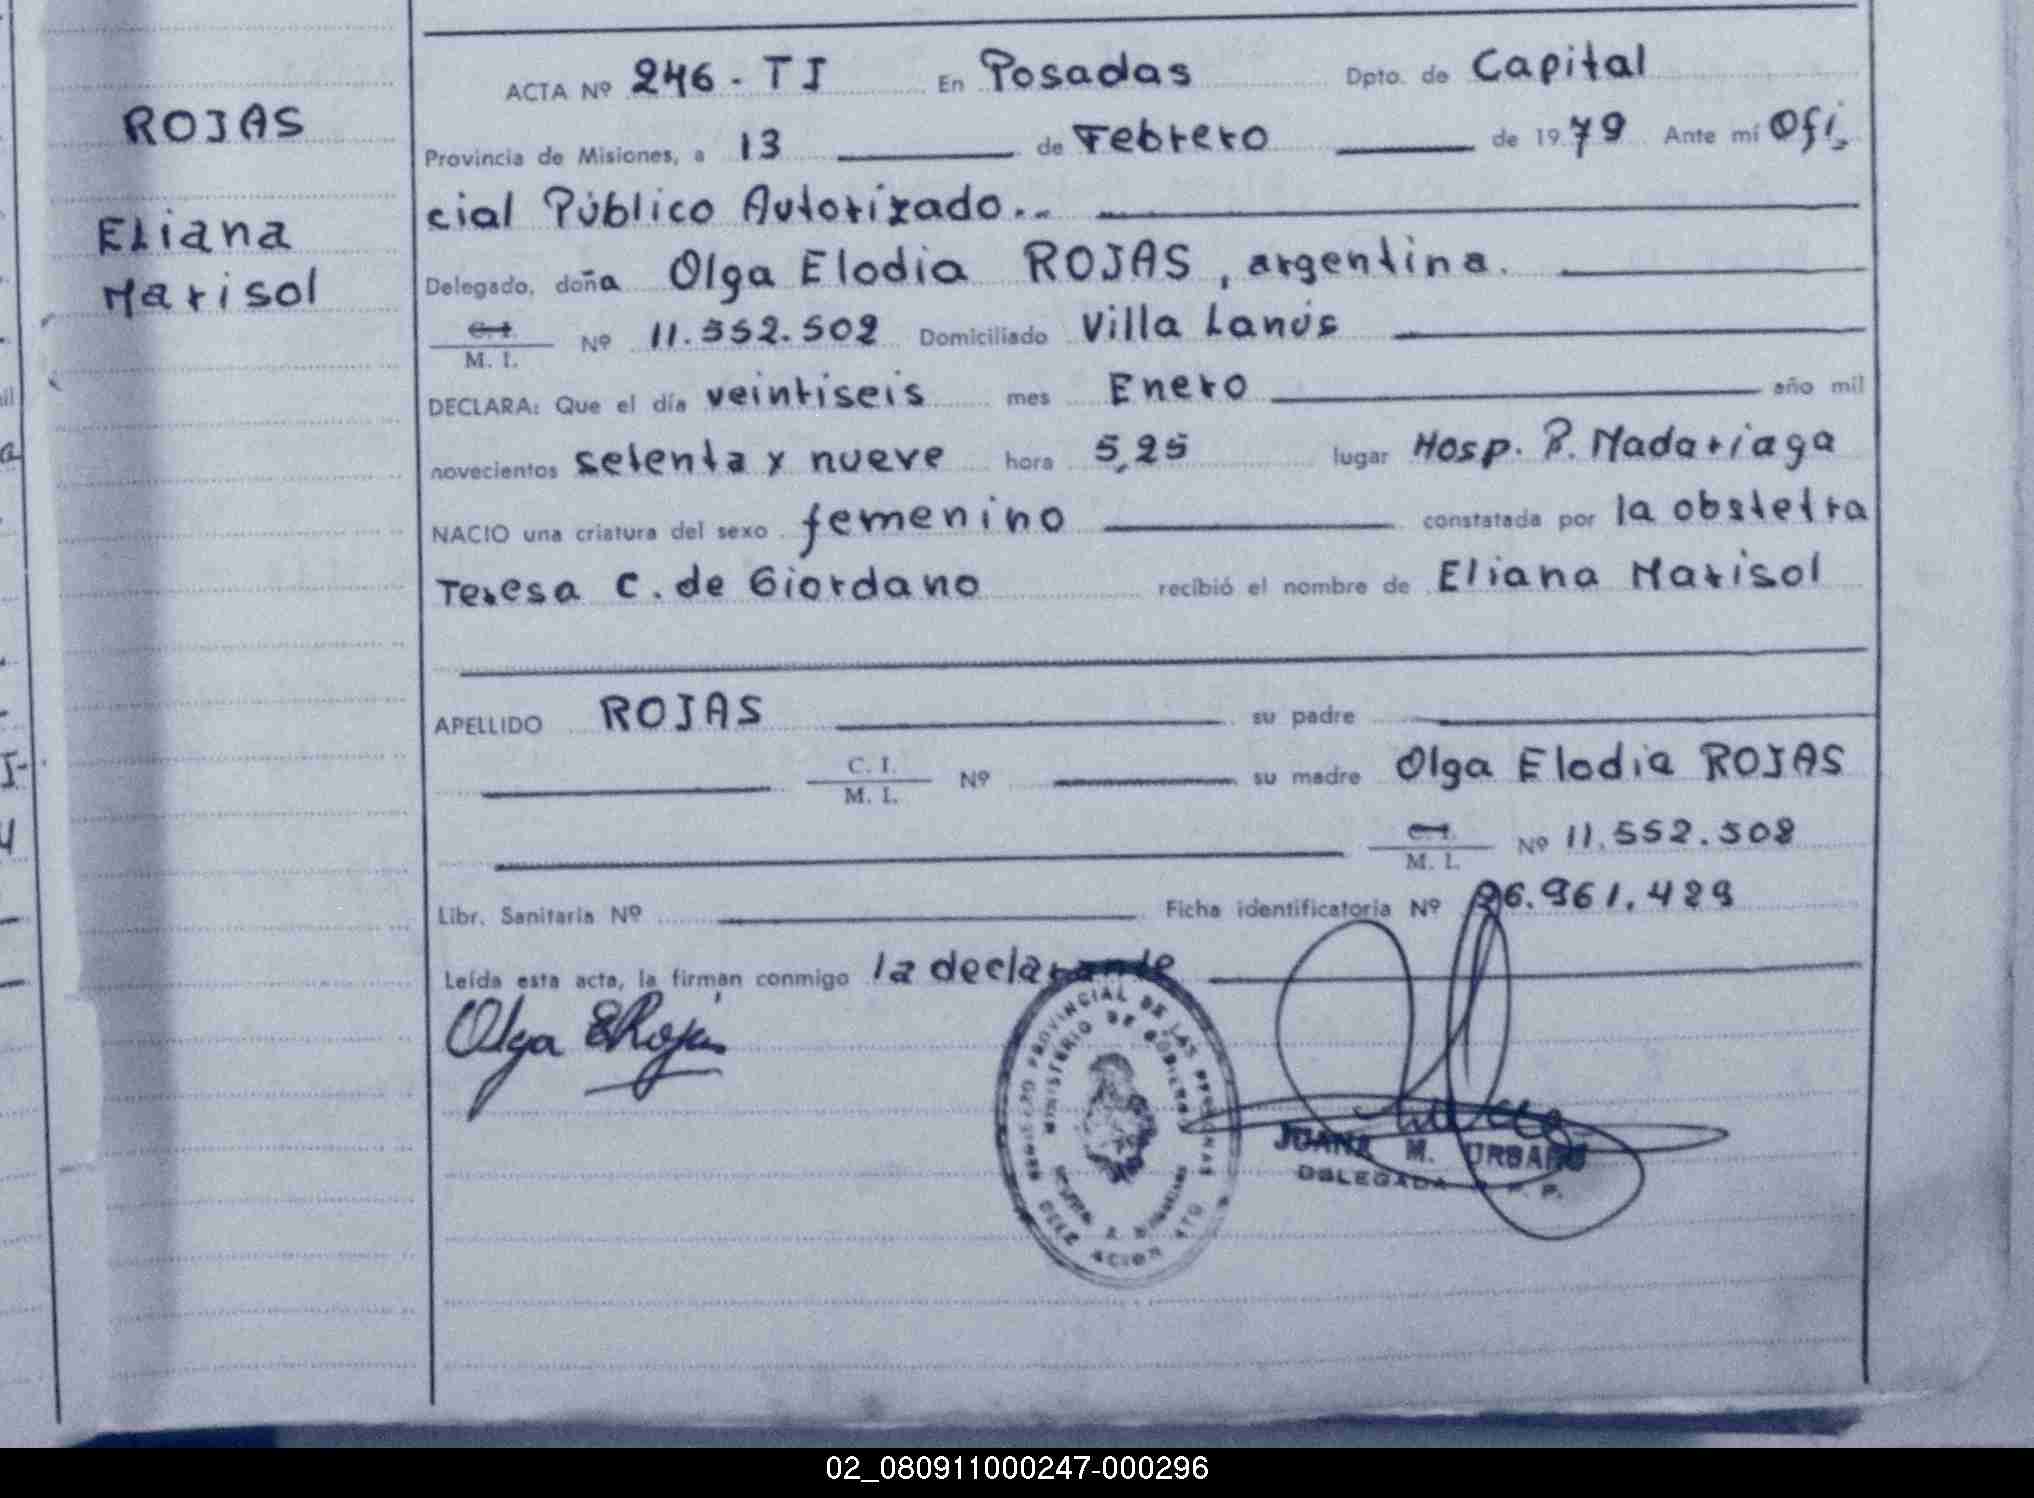 ROJAS
Eliana
Marisol
ACTA Nº 246 - TI En Posadas Dpto. de Capital
Provincia de Misiones, a 13 de Febrero de 1979 Ante mí Ofi-
cial Público Autorizado..-
Delegado, doña Olga Elodia ROJAS, argentina.
C. I.
M. I. Nº 11.552.502 Domiciliado Villa Lanús
DECLARA: Que el día veintiseis mes Enero año mil
novecientos setenta y nueve hora 5,25 lugar Hosp. R. Madariaga
NACIO una criatura del sexo femenino constatada por la obstetra
Teresa C. de Giordano recibió el nombre de Eliana Marisol
APELLIDO ROJAS su padre
C. I.
M. I. Nº su madre Olga Elodia ROJAS
C. I.
M. I. Nº 11.552.502
Libr. Sanitaria Nº Ficha identificatoria Nº 26.961.429
Leída esta acta, la firman conmigo la declarante
Olga E Rojas
PROVINCIAL DE LAS PERSONAS
MINISTERIO DE GOBIERNO
JUANA M. URBANO
DELEGADA R. P. P.
02_080911000247-000296